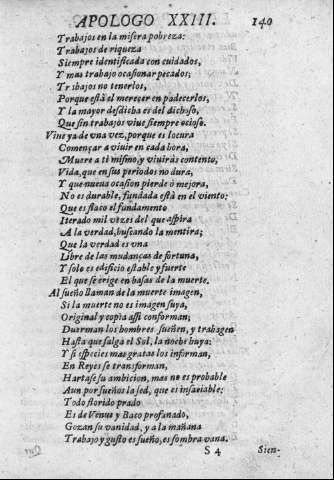 APOLOGO XXIII. 140
Trabajos en la misera pobreza:
Trabajos de riqueza
Siempre identificada con cuidados,
Y mas trabajo ocasionar pecados;
Trabajos no tenerlos,
Porque està el merecer en padecerlos,
Y la mayor desdicha es del dichoso,
Que sin trabajos viue siempre ocioso.
Viue ya de vna vez, porque es locura
Començar a viuir en cada hora,
Muere a ti mismo, y viuiràs contento,
Vida, que en sus periodos no dura,
Y que nueua ocasion pierde ò mejora,
No es durable, fundada està en el viento:
Que es flaco el fundamento
Iterado mil vezes del que aspira
A la verdad, buscando la mentira;
Que la verdad es vna
Libre de las mudanças de fortuna,
Y solo es edificio estable y fuerte
El que se erige en basas de la muerte.
Al sueño llaman de la muerte imagen,
Si la muerte no es imagen suya,
Original y copia assi conforman;
Duerman los hombres sueñen, y trabagen
Hasta que salga el Sol, la noche huya:
Y si especies mas gratas los informan,
En Reyes se transforman,
Hartase su ambicion, mas no es probable
Aun por sueños la sed, que es insaciable;
Todo florido prado
Es de Venus y Baco profanado,
Gozan su vanidad, y a la mañana
Trabajo y gusto es sueño, es sombra vana.
S 4 Sien-